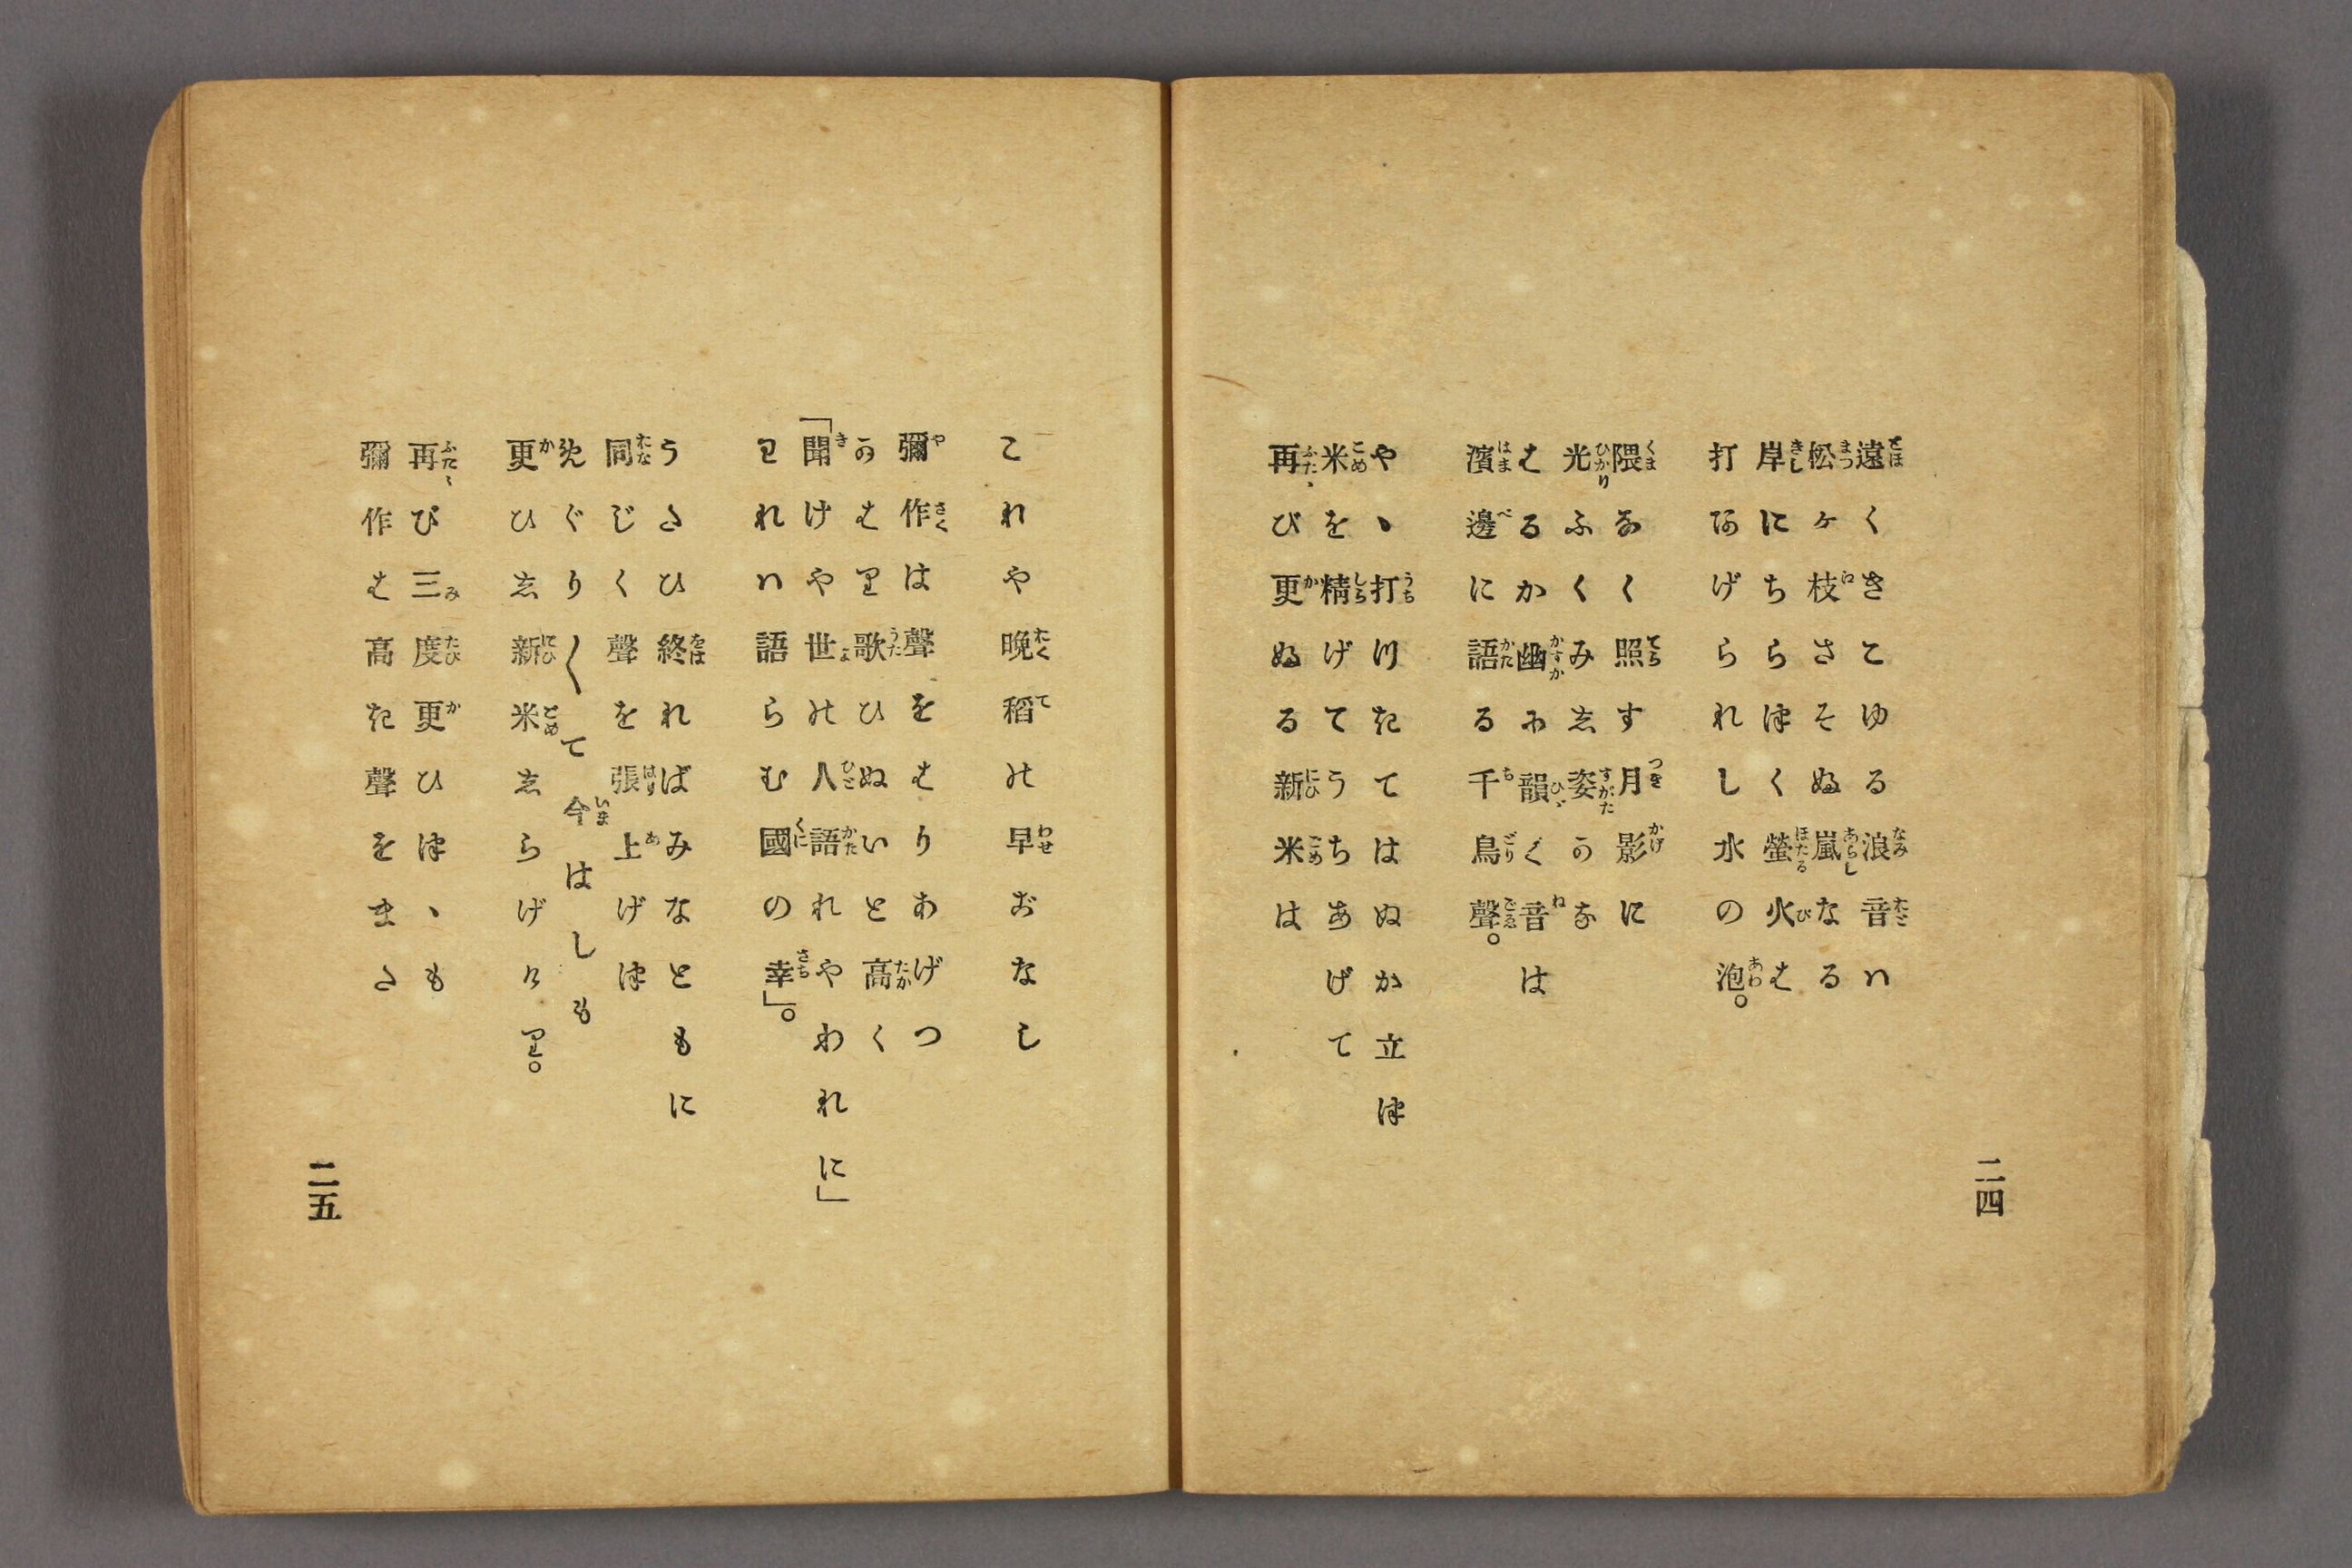 遠くきこゆる浪音ハ
松ヶ枝さそふ嵐なる
岸にちらつく螢火は
打あげられし水の泡。
隈なく照す月影に
光ふくみし姿かな
はるか幽に韻く音は
濱邊に語る千鳥聲。
やゝ打つきてはぬか立つ
米を精げてうちあげて
再び更ふる新米は
二四
これや晩稻の早おなし
彌作は聲をはりあげつ
かはり歌ひぬいと高く
「聞けや世の人語れやわれに」
われハ語らむ國の幸」。
うたひ終ればみなともに
同じく聲を張上げつ
めぐり〱て今はしも
更ひし新米しらげけり。
再び三度更ひつゝも
彌作は高き聲をまた
二五